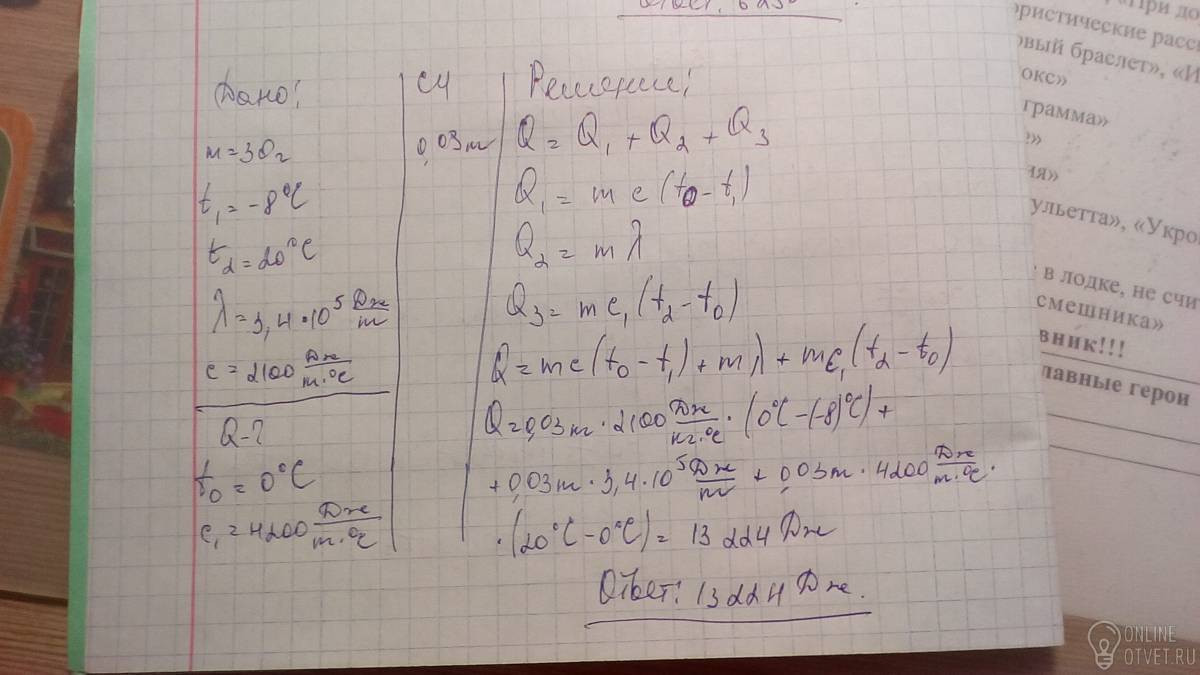 Дано:
m = 30г
t₁ = -8°C
t₂ = 20°C
λ = 3,4·10⁵ Дж/m
c = 2100 Дж/m·°C
Q-?
t₀ = 0°C
c₁ = 4200 Дж/m·°C
СИ
0,03m
Решение:
Q = Q₁ + Q₂ + Q₃
Q₁ = mc(t₀ - t₁)
Q₂ = mλ
Q₃ = mc₁(t₂ - t₀)
Q = mc(t₀ - t₁) + mλ + mc₁(t₂ - t₀)
Q = 0,03m · 2100 Дж/кг·°C · (0°C - (-8)°C) +
+ 0,03m · 3,4·10⁵ Дж/m + 0,03m · 4200 Дж/m·°C ·
· (20°C - 0°C) = 13224 Дж
Ответ: 13224 Дж.
«При до
ористические расс
овый браслет», «И
окс»
грамма»
ульетта», «Укро
в лодке, не счит
смешника»
вник!!!
лавные герои
ONLINE
OTVET.RU